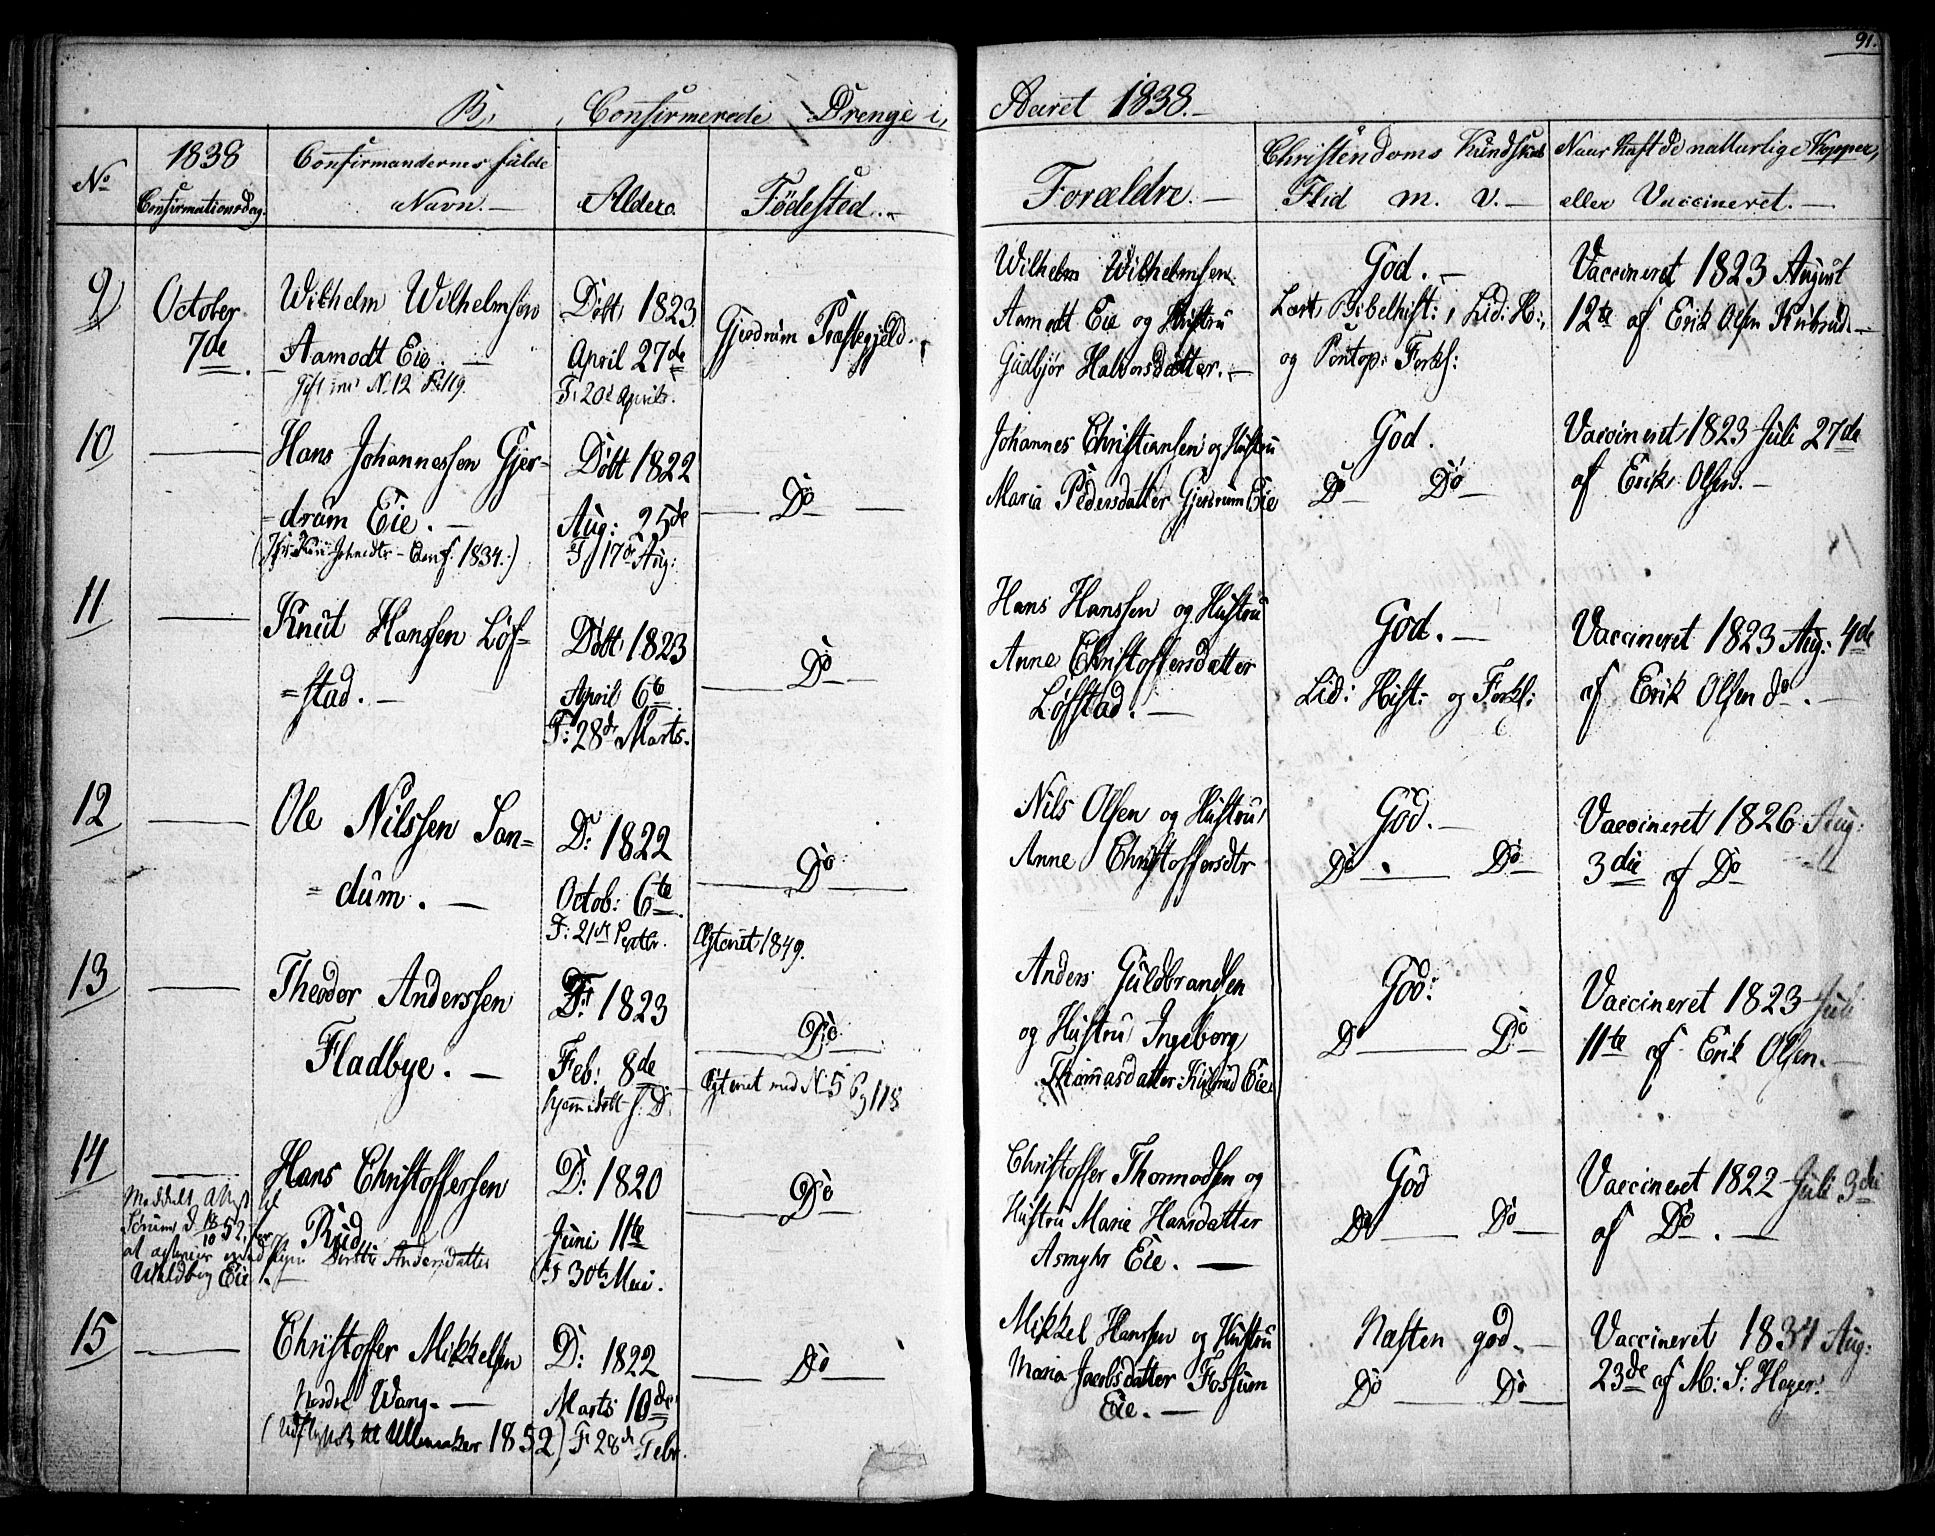 91.
B, Confirmerede Drenge i, Aaret 1838.
No
1838 Confirmationsdag.
Confirmandernes fulde Navn.
Alder.
Fødested.
Forældre.
Christendoms Kundskab
Flid m. v.
Naar haft de natturlige Kopper,
eller Vaccineret.
9
October
7de
Wilhelm Wilhelmsen
Aamodt Eie.
Døbt 1823
April 27de
F: 20d April.
Gjerdrum Præstegjeld.
Wilhelm Wilhelmsen
Aamodt Eie og Hustru
Gudbjør Halvorsdatter.
God.
Læst Bibelhist:, Lid: H:,
og Pontop: Forkl:
Vaccineret 1823 August
12te af Erik Olsen Kulsrud
10
Hans Johannessen Gjer-
=drum Eie.
Døbt 1822
Aug: 25de
F 17de Aug:
Do
Johannes Christiansen og Hustru
Maria Pedersdatter Gjerdrum Eie
God.
Do Do
Vaccineret 1823 Juli 27de
af Erik Olsen.
11
Knut Hanssen Løf-
=stad.
Døbt 1823
April 6te
F: 28de Marts.
Do
Hans Hanssen og Hustru
Anne Christoffersdatter
Løfstad.
God.
Lid: Hist: og Forkl:
Vaccineret 1823 Aug: 4de
af Erik Olsen do.
12
Ole Nilssen San-
=dum.
D: 1822
Octob: 6te
F: 21de Septbr.
Do
Ægteviet 1849.
Nils Olsen og Hustru
Anne Christoffersdtr
God.
Do Do
Vaccineret 1826 Aug:
3die af Do
13
Theodor Anderssen
Fladbye.
F: 1823
Feb: 8de
hjemmedøbt f: D:
Do
Ægteviet med N. 5
Anders Guldbrandsen
og Hustru Ingeborg
Thomasdatter Kulsrud Eie
God:
Do Do
Vaccineret 1823 Juli
11te af Erik Olsen.
14
Hans Christoffersen
Rud
Meddelt Attest til
Sørum d. 18/10 52, for
at ægtevies med Pigen Dorthe Andersdatter
Waldbye Eie.
D: 1820
Juni 11te
F 30te Mai.
Do
Christoffer Thormodsen og
Hustru Marie Hansdatter
Asmyhr Eie.
God
Do Do
Vaccineret 1822 Juli 3die
af Do.
15
Christoffer Mikkelsen
Nordre Wang.
(Udflyttet til Ullensaker 1852)
D: 1822
Marts 10de
F 28de Febr.
Do
Mikkel Hanssen og Hustru
Maria Jacobsdatter Fossum
Eie.
Næsten god.
Do Do
Vaccineret 1834 Aug:
23de af M: S: Hager.